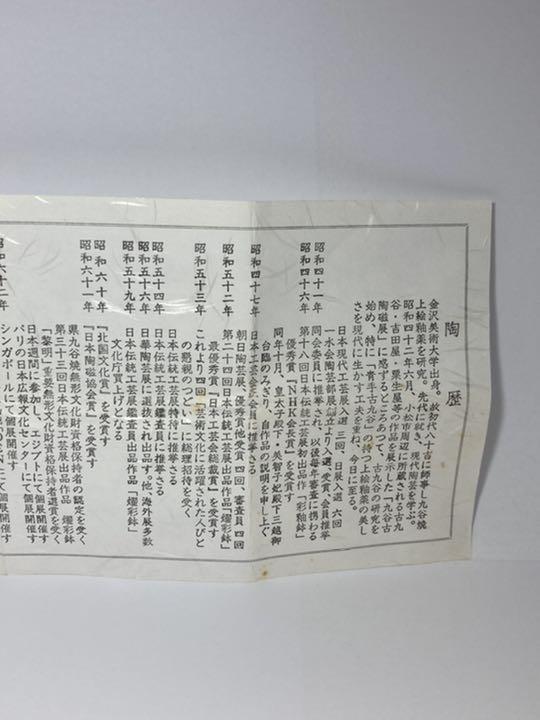 陶歴
金沢美術大学出身。故初代八十吉に師事し九谷焼
上絵釉薬を研究。先代に続き、現代陶芸を学ぶ。
昭和四十二年六月、小松市周辺に所蔵される古九
谷・吉田屋・粟生屋等の作品を展示した「九谷古
陶磁展」に惑ずるところあって、古九谷の研究を
始め、特に「青手古九谷」の持つ上絵釉薬の美し
さを現代に生かす工夫を重ね、今日に至る。
日本現代工芸展入選 三回、日展入選 六回
昭和四十一年 一水会陶芸部展創立より入選、受賞、会員推挙
同会委員に推挙され、以後毎年審査に携わる
昭和四十六年 第十八回日本伝統工芸展初出品作「彩釉鉢」
優秀賞『NHK会長賞』を受賞す
同年十月、皇太子殿下・美智子妃殿下三越御
台臨のみぎり、自作品の説明を申し上ぐ
昭和四十七年 日本工芸会正会員に推挙さる
朝日陶芸展、優秀賞他受賞 四回、審査員 四回
昭和五十二年 第二十四回日本伝統工芸展出品作品「燿彩鉢」
最優秀賞『日本工芸会総裁賞』を受賞す
昭和五十三年 これより四回「芸術文化に活躍された人びと
の懇親のつどい」に総理招待を受く
日本伝統工芸展特待に推挙さる
昭和五十四年 日本伝統工芸展鑑査員に推挙さる
昭和五十六年 日華陶芸展に選抜され出品す。他、海外展多数
昭和五十九年 日本伝統工芸展鑑査員出品作品「燿彩鉢」
文化庁買上げとなる
昭和六十年 『北国文化賞』を受賞す
昭和六十一年 『日本陶磁協会賞』を受賞す
県九谷焼無形文化財資格保持者の認定を受く
第三十三回日本伝統工芸展出品作品 燿彩鉢
「黎明」重要無形文化財資格保持者選賞を受く
日本週間に参加し、エジプトにて個展開催す
パリの日本広報文化センターにて個展開催す
昭和六十二年 シンガポールにて個展開催す